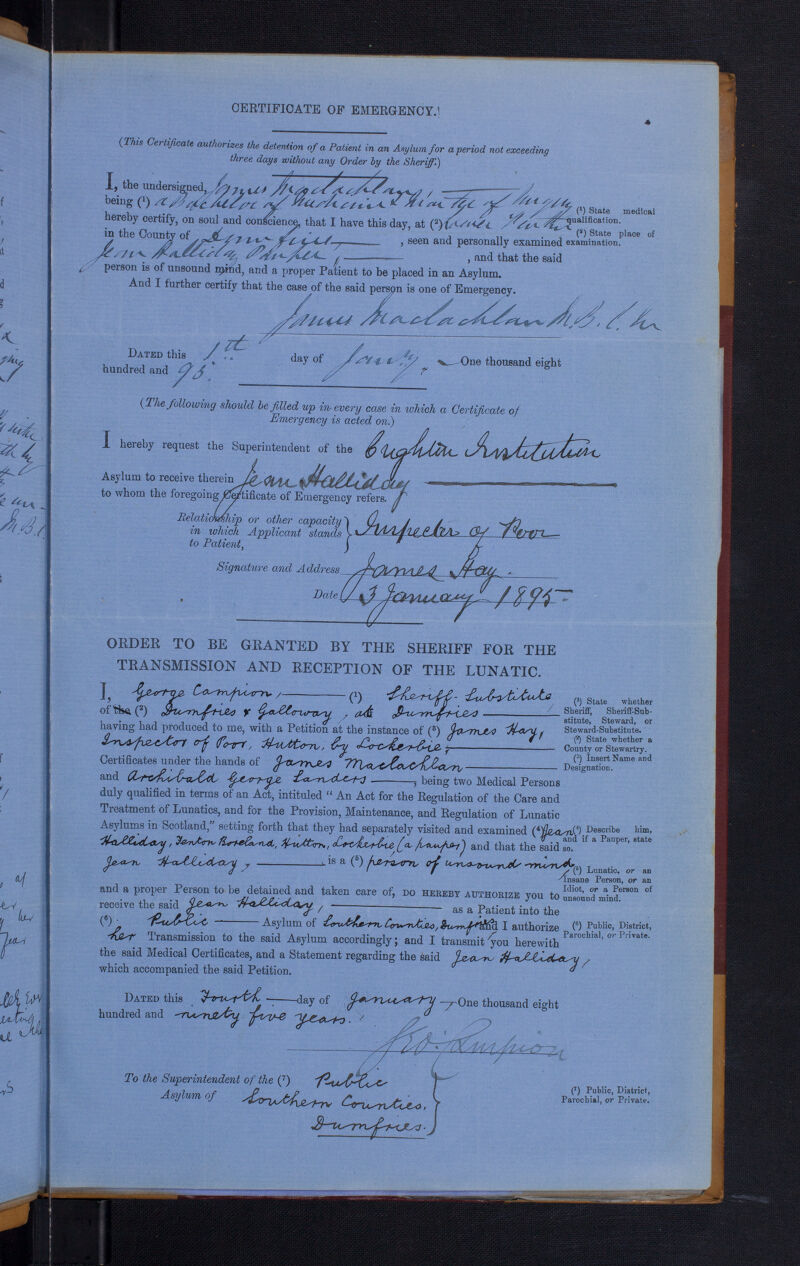 CERTIFICATE OF EMERGENCY.
(This Certificate authorizes the detention of a Patient in an Asylum for a period not exceeding
three days without any Order by the Sheriff.)
I, the undersigned, James Maclachlan,
being (¹) a Bachelor of Medicine & Master of Surgery
(¹) State medical
qualification.
hereby certify, on soul and conscience, that I have this day, at (²)
(²) State place of
examination.
in the County of Dumfries, seen and personally examined
Jean Halliday, Pauper, , and that the said
person is of unsound mind, and a proper Patient to be placed in an Asylum.
And I further certify that the case of the said person is one of Emergency.
James Maclachlan M.B. C.M
DATED this 1th day of Jany. One thousand eight
hundred and 95.
(The following should be filled up in every case in which a Certificate of
Emergency is acted on.)
I hereby request the Superintendent of the Crighton Institution
Asylum to receive therein Jean Halliday
to whom the foregoing Certificate of Emergency refers.
Relationship or other capacity
in which Applicant stands
to Patient,
Inspector of Poor
Signature and Address James Hay.
Date 3 January 1895
ORDER TO BE GRANTED BY THE SHERIFF FOR THE
TRANSMISSION AND RECEPTION OF THE LUNATIC.
I, George Campion, (¹) Sheriff-Substitute
(¹) State whether
Sheriff, Sheriff-Sub-
stitute, Steward, or
Steward-Substitute.
of the (²) Dumfries & Galloway, at Dumfries
(²) State whether a
County or Stewartry.
having had produced to me, with a Petition at the instance of (³) James Hay,
Inspector of Poor, Hutton, by Lockerbie,
(³) Insert Name and
Designation.
Certificates under the hands of James Maclachlan
and Archibald George Sanders, being two Medical Persons
duly qualified in terms of an Act, intituled "An Act for the Regulation of the Care and
Treatment of Lunatics, and for the Provision, Maintenance, and Regulation of Lunatic
Asylums in Scotland," setting forth that they had separately visited and examined (⁴) Jean
(⁴) Describe him,
and if a Pauper, state
so.
Halliday, Fenton Boreland, Hutton, Lockerbie (a pauper) and that the said
Jean Halliday, is a (⁵) person of unsound mind,
(⁵) Lunatic, or an
Insane Person, or an
Idiot, or a Person of
unsound mind.
and a proper Person to be detained and taken care of, DO HEREBY AUTHORIZE you to
receive the said Jean Halliday, as a Patient into the
(⁶) Public Asylum of Southern Counties, Dumfries and I authorize
(⁶) Public, District,
Parochial, or Private.
her Transmission to the said Asylum accordingly; and I transmit you herewith
the said Medical Certificates, and a Statement regarding the said Jean Halliday,
which accompanied the said Petition.
DATED this Fourth day of January, One thousand eight
hundred and ninety five years.
Geo: Campion
To the Superintendent of the (⁷) Public
Asylum of Southern Counties,
Dumfries.
(⁷) Public, District,
Parochial, or Private.